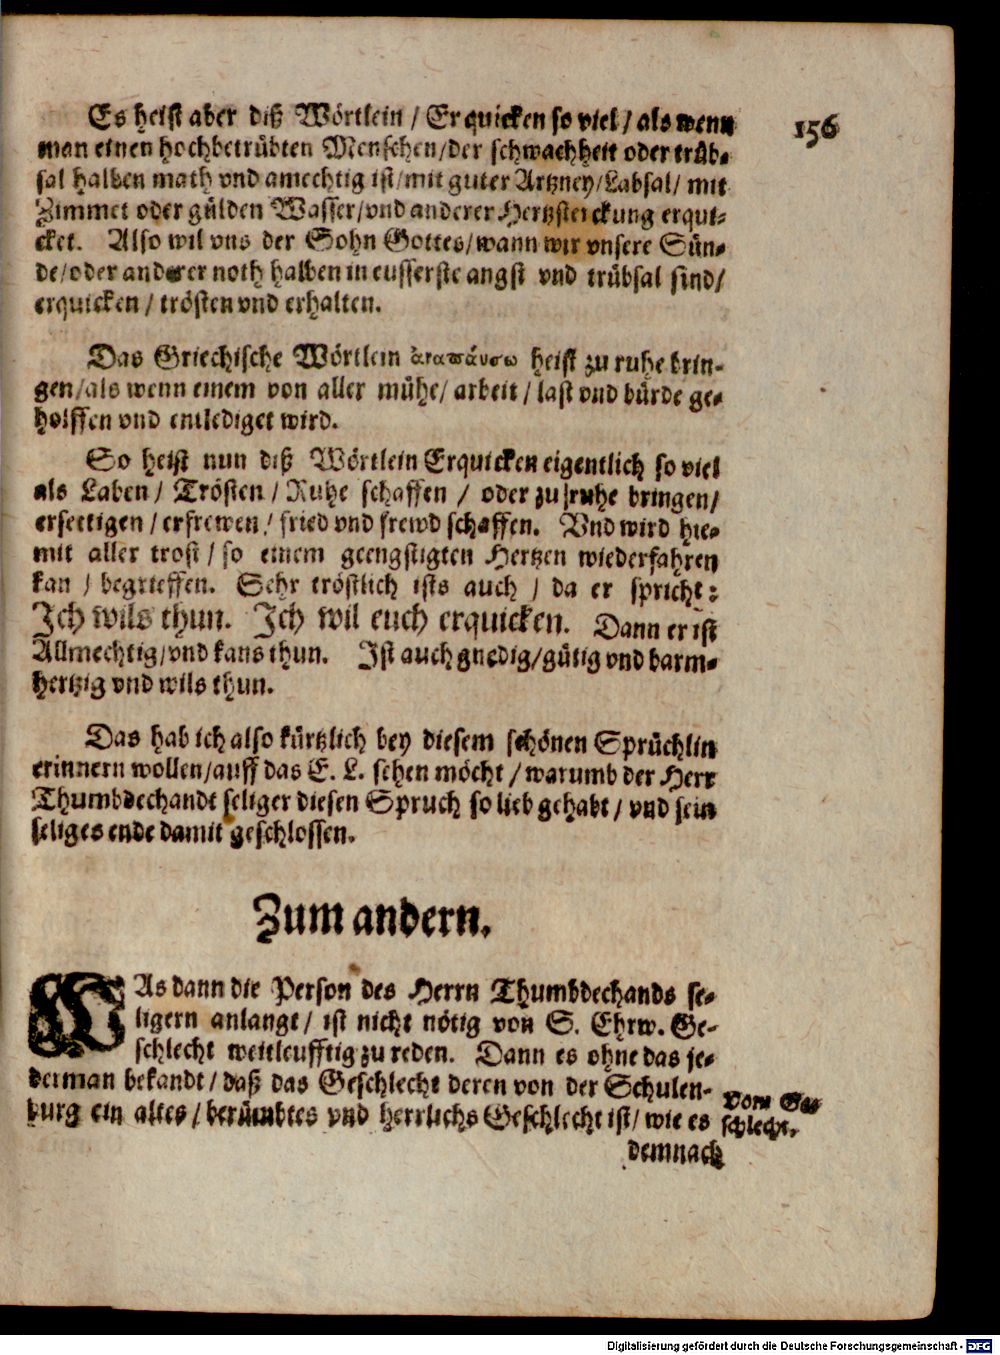 Es heist aber diß Wörtlein / Erquicken so viel / als wenn
156
man einen hochbetrübten Menschen / der schwachheit oder trüb-
sal halben math vnd amechtig ist / mit guter Artzney / Labsal / mit
Zimmet oder gülden Wasser / vnd anderer Hertzsterckung erqui-
cket. Also wil vns der Sohn Gottes / wann wir vnsere Sün-
de / oder anderer noth halben in eusserste angst vnd trübsal sind /
erquicken / trösten vnd erhalten.
Das Griechische Wörtlein ἀναπάυσω heist zu ruhe brin-
gen / als wenn einem von aller mühe / arbeit / last vnd bürde ge-
holffen vnd entlediget wird.
So heist nun diß Wörtlein Erquicken eigentlich so viel
als Laben / Trösten / Ruhe schaffen / oder zu ruhe bringen /
ersettigen / erfrewen / fried vnd frewd schaffen. Vnd wird hie-
mit aller trost / so einem geengstigten Hertzen wiederfahren
kan / begrieffen. Sehr tröstlich ists auch / da er spricht:
Ich wils thun. Ich wil euch erquicken. Dann er ist
Allmechtig / vnd kans thun. Ist auch gnedig / gütig vnd barm-
hertzig vnd wils thun.
Das hab ich also kürtzlich bey diesem schönen Sprüchlin
erinnern wollen / auff das E. L. sehen möcht / warumb der Herr
Thumbdechandt seliger diesen Spruch so lieb gehabt / vnd sein
seliges ende damit geschlossen.
Zum andern.
WAs dann die Person des Herrn Thumbdechands se-
ligern anlangt / ist nicht nötig von S. Ehrw. Ge-
schlecht weitleufftig zu reden. Dann es ohne das je-
derman bekandt / daß das Geschlecht deren von der Schulen-
burg ein altes / berümbtes vnd herrlichs Geschlecht ist / wie es
Vom Ge-
schlecht.
demnach
Digitalisierung gefördert durch die Deutsche Forschungsgemeinschaft - DFG